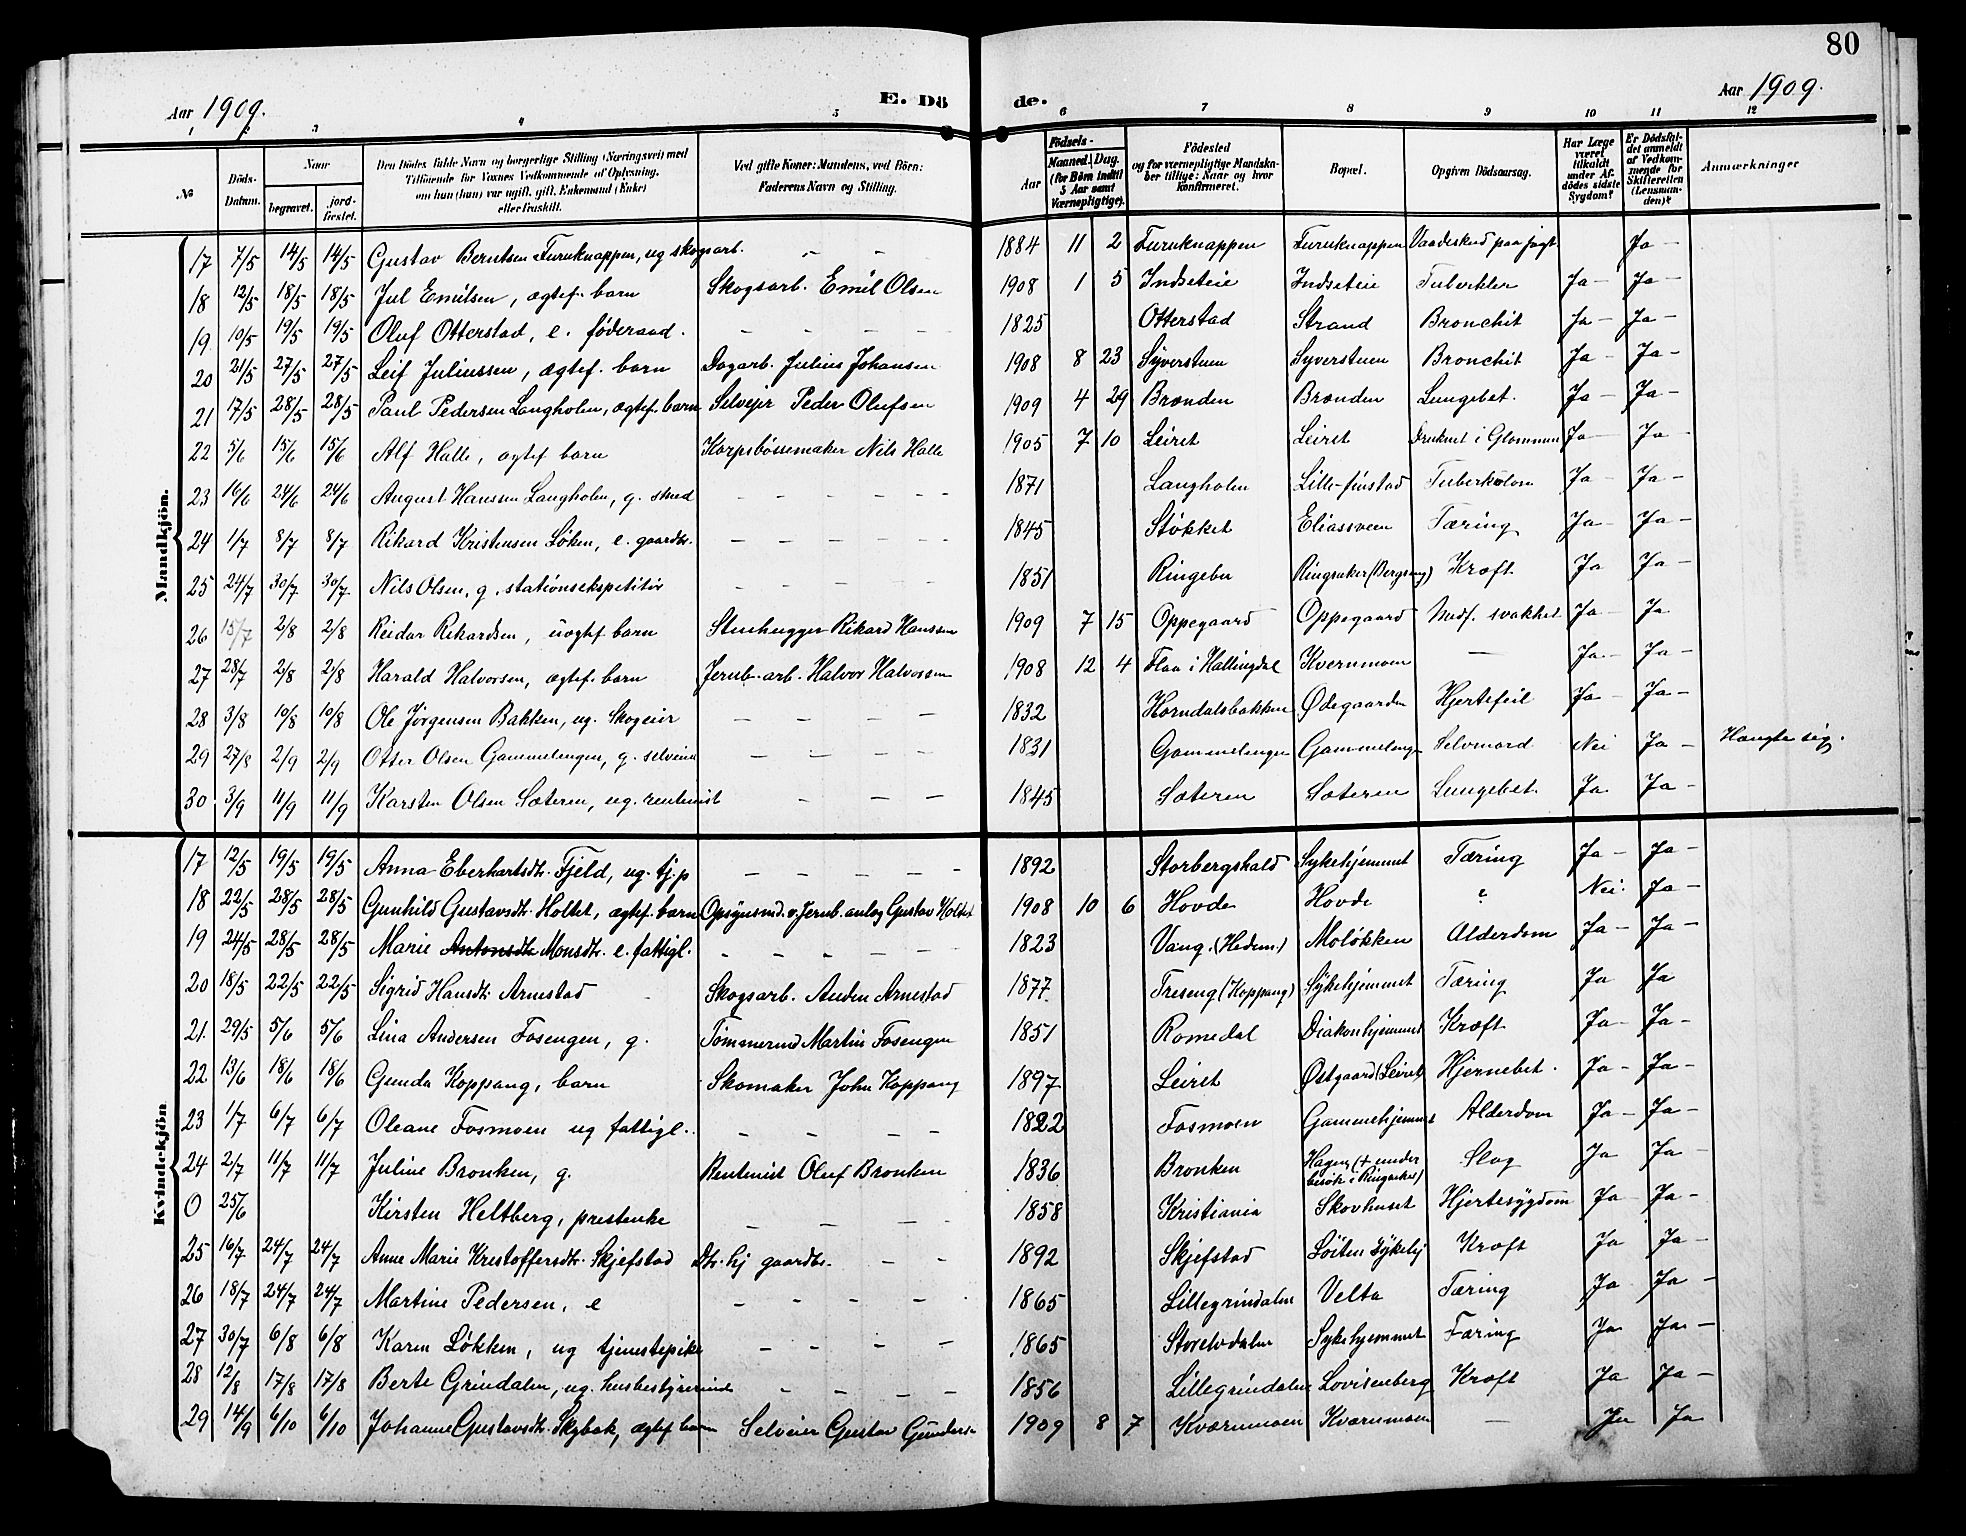 80
Aar 1909.
E. Dö de.
Aar 1909.
1 2 3 4 5 6 7 8 9 10 11 12
No
Döds-Datum.
Naar
begravet.
jord-fæstet.
Den Dödes fulde Navn og borgerlige Stilling (Næringsvei) med
Tilföiende for Voxnes Vedkommende af Oplysning,
om han (hun) var ugift, gift, Enkemand (Enke)
eller fraskilt.
Ved gifte Koner: Mandens, ved Börn:
Faderens Navn og Stilling.
Födsels-
Aar
Maaned. Dag.
(for Börn indtil
5 Aar samt
Værnepligtige).
Födested
og for værnepligtige Mandskaber tillige: Naar og hvor
konfirmeret.
Bopæl.
Opgiven Dödsaarsag.
Har Læge
været
tilkaldt
under Afdödes sidste
Sygdom?
Er Dödsfaldet anmeldt
af Vedkommende for
Skifteretten
(Lensmanden)?
Anmærkninger
Mandkjön.
17 7/5 14/5 14/5 Gustav Berntsen Furuknappen, ug skogsarb. – – 1884 11 2 Furuknappen Furuknappen Vaadeskud paa jagt Ja –
18 12/5 18/5 18/5 Jul Emilsen, ægtef. barn Skogsarb. Emil Olsen 1908 1 5 Indseteie Indseteie Tuberkler Ja – Ja –
19 10/5 19/5 19/5 Oluf Otterstad, e. føderaad. – – – – 1825 Otterstad Strand Bronchit Ja – Ja –
20 21/5 27/5 27/5 Leif Juliussen, ægtef. barn Dagarb. Julius Johansen 1908 8 23 Syverstuen Syverstuen Bronchit Ja – Ja –
21 17/5 28/5 28/5 Paul Pedersen Langholen, ægtef. barn Selveier Peder Olufsen 1909 4 29 Brænden Brænden Lungebet. Ja – Ja –
22 5/6 15/6 15/6 Alf Halle, ægtef barn Korpsbössemaker Nils Halle 1905 7 10 Leiret Leiret Druknet i Glommen Ja – Ja –
23 16/6 24/6 24/6 August Hanssen Langholen, g. smed – – – – – – 1871 Langholen Lille-finstad Tuberkulose Ja – Ja –
24 1/7 8/7 8/7 Rikard Kristensen Løken, e. gaardbr. – – – – – 1845 Støkket Eliassveen Tæring Ja – Ja –
25 24/7 30/7 30/7 Nils Olsen, g. stationsekspeditør – – – – 1851 Ringebu Ringsaker (Bergseng) Kræft Ja Ja –
26 15/7 2/8 2/8 Reidar Rikardsen, uægtef barn Stenhugger Rikard Hanssen 1909 7 15 Oppegaard Oppegaard Medf. svakhet Ja – Ja
27 28/7 2/8 2/8 Harald Halvorsen, ægtef. barn Jernb. arb. Halvor Halvorsen 1908 12 4 Flaa i Hallingdal Kvernmoen — Ja – Ja –
28 3/8 10/8 10/8 Ole Jørgensen Bakken, ug. Skogeier – – – – 1832 Horndalsbakken Ødegaarden Hjertefeil Ja – Ja –
29 27/8 2/9 2/9 Otter Olsen Gammelengen, g. selveier – – – 1831 Gammelengen Gammelengen Selvmord Nei Ja – Hængte sig.
30 3/9 11/9 11/9 Karsten Olsen Sæteren, ug. rentenist – – – 1845 Sæteren Sæteren Lungebet. Ja Ja –
Kvindekjön
17 12/5 19/5 19/5 Anna Eberhartsdtr. Fjeld, ug. tj.p – – – – – 1892 Storbergshald Sykehjemmet Tæring Ja – Ja –
18 22/5 28/5 28/5 Gunhild Gustavsdtr. Holtet, ægtef. barn Opsynsmd. v. Jernb. anlæg Gustav Holtet 1908 10 6 Hovde Hovde " Nei. Ja –
19 24/5 28/5 28/5 Marie Antonsdtr Monsdtr. e. fattigl. – – – – – 1823 Vang. (Hedem.) Moløkken Alderdom Ja – Ja –
20 18/5 22/5 22/5 Sigrid Hansdtr Arnestad Skogsarb. Anden Arnestad 1877 Treseng (Koppang) Sykehjemmet Tæring Ja Ja
21. 29/5 5/6 5/6 Lina Andersen Fosengen, g. Tømmermd Martin Fosengen 1851 Romedal Diakonhjemmet Kræft Ja – Ja –
22 13/6 18/6 18/6 Gunda Koppang, barn Skomaker John Koppang 1897 Leiret Østgaard (Leiret) Hjernebet. Ja – Ja –
23 1/7 6/7 6/7 Oleane Fosmoen ug fattigl. – – – – 1822 Fosmoen Gammehjemmet Alderdom Ja – Ja –
24 2/7 11/7 11/7 Juline Bronken, g. Rentenist Oluf Bronken 1836 Bronken Hagen (+ under besøk i Ringsaker) Slag Ja Ja –
0 25/6 Kirsten Heltberg, prestenke – – – – 1858 Kristiania Skovhuset Hjertesygdom Ja – Ja –
25 16/7 24/7 24/7 Anne Marie Kristoffersdtr. Skjefstad Dtr. hj gaardbr. – – 1892 Skjefstad Løiten Sykehj Kræft Ja Ja –
26 18/7 24/7 24/7 Martine Pedersen, e – – – – – 1865 Lillegrindalen Velta Tæring Ja Ja –
27 30/7 6/8 6/8 Karen Løkken, ug tjenestepike – – – – 1865 Storelvdalen Sykehjemmet Tæring Ja Ja –
28 12/8 17/8 17/8 Berte Grindalen, ug. husbestyrerinde – – – – 1856 Lillegrindalen Lovisenberg Kræft Ja Ja –
29 14/9 6/10 6/10 Johanne Gustavsdtr. Skybak, ægtef barn Selveier Gustav Gunders 1909 8 7 Kværnmoen Kværnmoen — Ja Ja